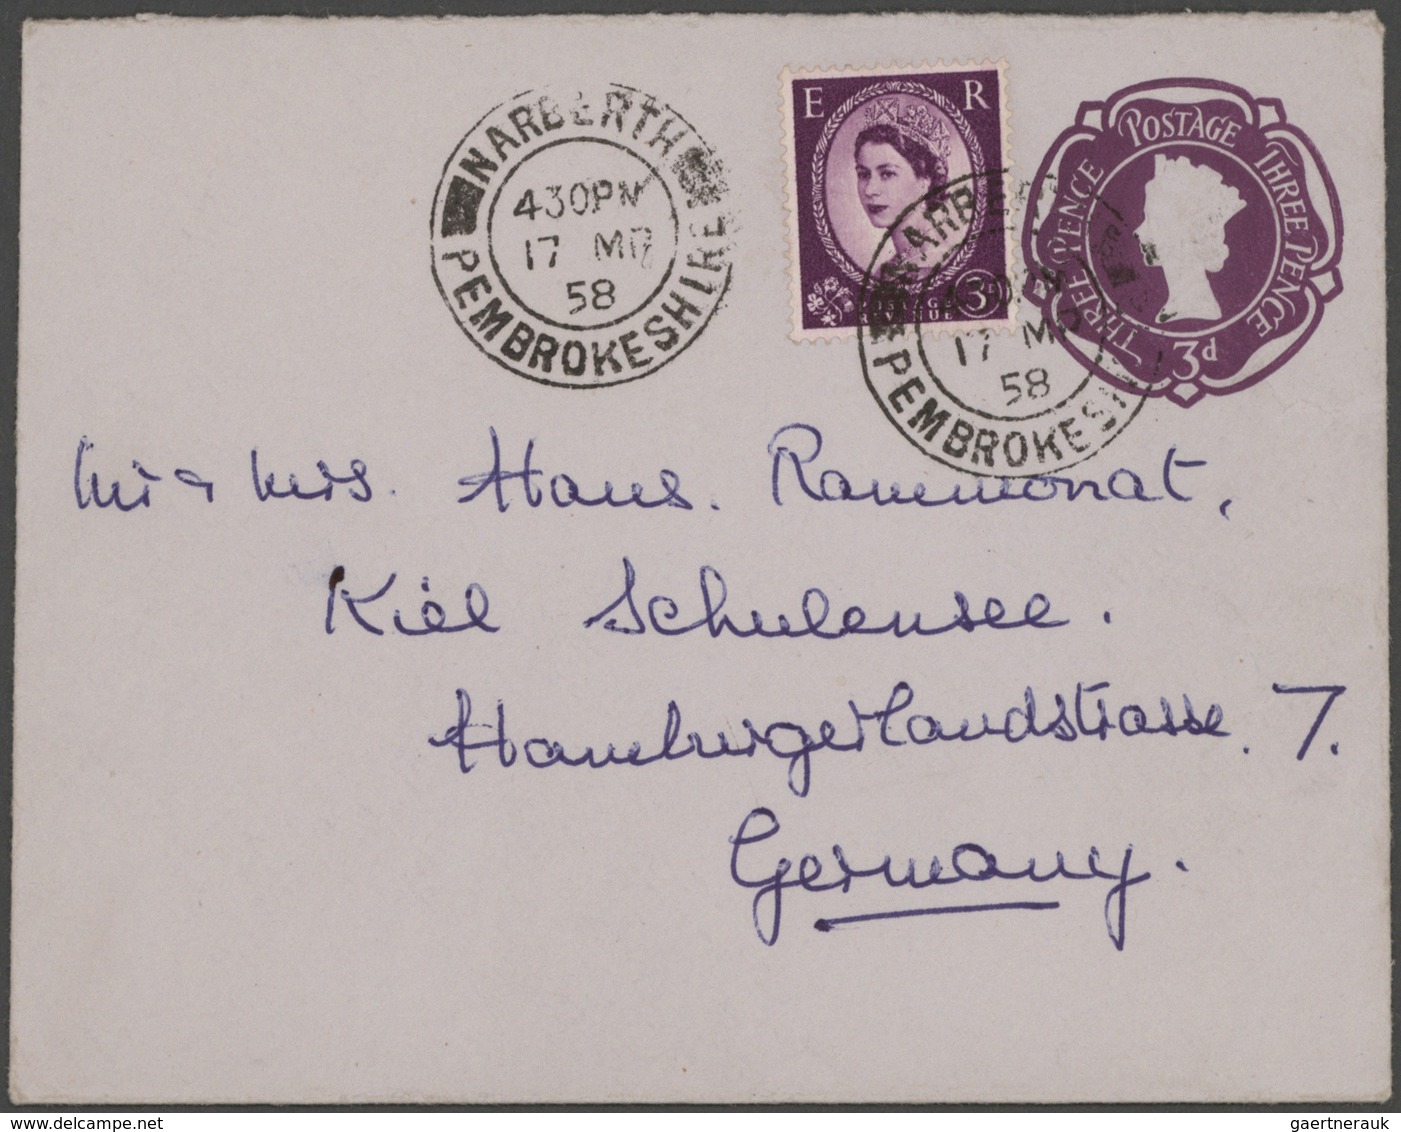 NARBERTH
430PM
17 MR
58
PEMBROKESHIRE
E R
3D
POSTAGE
THREE PENCE
THREE PENCE
3d
ARBERT
17 M
58
PEMBROKESHI
Mr & Mrs. Hans. Rammonat,
Kiel Schulensee.
Hamburgerlandstrasse. 7.
Germany.
gaertnerauk